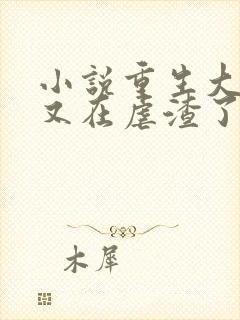 小说重生大
又在虐渣了
木犀